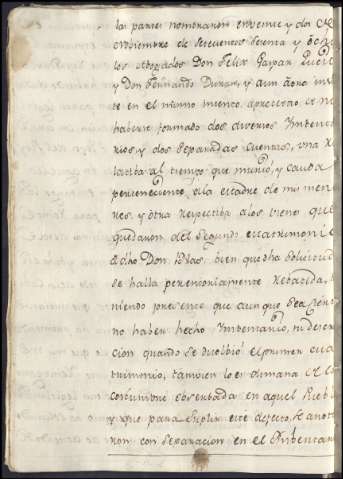 las partes nombraron en veinte y dos de
Noviembre de setecientos setenta y ocho
los Abogados Don Felix Gaspar
y Don Fernando Duran, y aun aora
te en el mismo intento, apreciado
haberse formado dos diversos Imbenta
rios, y dos separadas cuentas, una re
lativa al tiempo que murió, y caudal
perteneciente, a la Madre de mis meno
res, y otra respectiva a los bienes que
quedaron del segundo matrimonio
de dho Don Blas, bien que dha solicitud
se halla perentoriamente rebatida, te
niendo presente que aunque sea
no haber hecho Imbentario, ni
cion quando se disolbió el primer ma
trimonio, tambien lo es dimana de la
costumbre observada en aquel Pueblo
y que para suplir este defecto, se anota
ron con separacion en el Imbentario